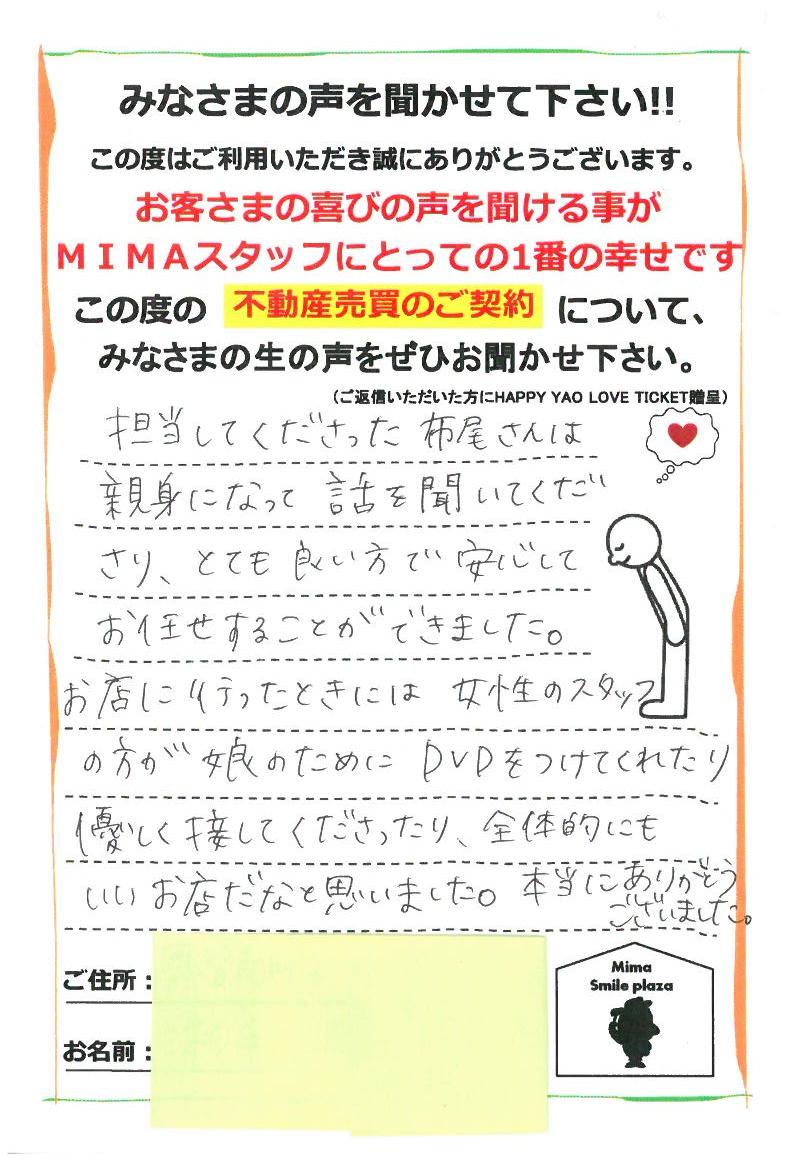 みなさまの声を聞かせて下さい!!
この度はご利用いただき誠にありがとうございます。
お客さまの喜びの声を聞ける事が
ＭＩＭＡスタッフにとっての1番の幸せです
この度の 不動産売買のご契約 について、
みなさまの生の声をぜひお聞かせ下さい。
（ご返信いただいた方にHAPPY YAO LOVE TICKET贈呈）
担当してくださった 布尾さんは
親身になって 話を聞いてくだ
さり、とても 良い方で 安心して
お任せすることができました。
お店に行ったときには 女性のスタッフ
の方が 娘のために DVDをつけてくれたり
優しく接してくださったり、全体的にも
いい お店だなと思いました。 本当にありがとう
ございました。
ご住所：
お名前：
Mima
Smile plaza